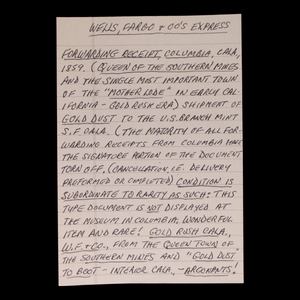 WELLS, FARGO & CO'S EXPRESS
FORWARDING RECEIPT, COLUMBIA, CALA.,
1859. (QUEEN OF THE SOUTHERN MINES
AND THE SINGLE MOST IMPORTANT TOWN
OF THE "MOTHER LODE" IN EARLY CAL-
IFORNIA - GOLD RUSH ERA) SHIPMENT OF
GOLD DUST TO THE U.S. BRANCH MINT
S.F. CALA. (THE MAJORITY OF ALL FOR-
WARDING RECEIPTS FROM COLUMBIA HAVE
THE SIGNATURE PORTION OF THE DOCUMENT
TORN OFF, (CANCELLATION, I.E. DELIVERY
PREFORMED OR COMPLETED) CONDITION IS
SUBORDINATE TO RARITY AS SUCH: THIS
TYPE DOCUMENT IS NOT DISPLAYED AT
THE MUSEUM IN COLUMBIA. WONDERFUL
ITEM AND RARE! GOLD RUSH CALA.,
W.F. & CO., FROM THE QUEEN TOWN OF
THE SOUTHERN MINES AND "GOLD DUST"
TO BOOT - INTERIOR CALA., - ARGONAUTS!